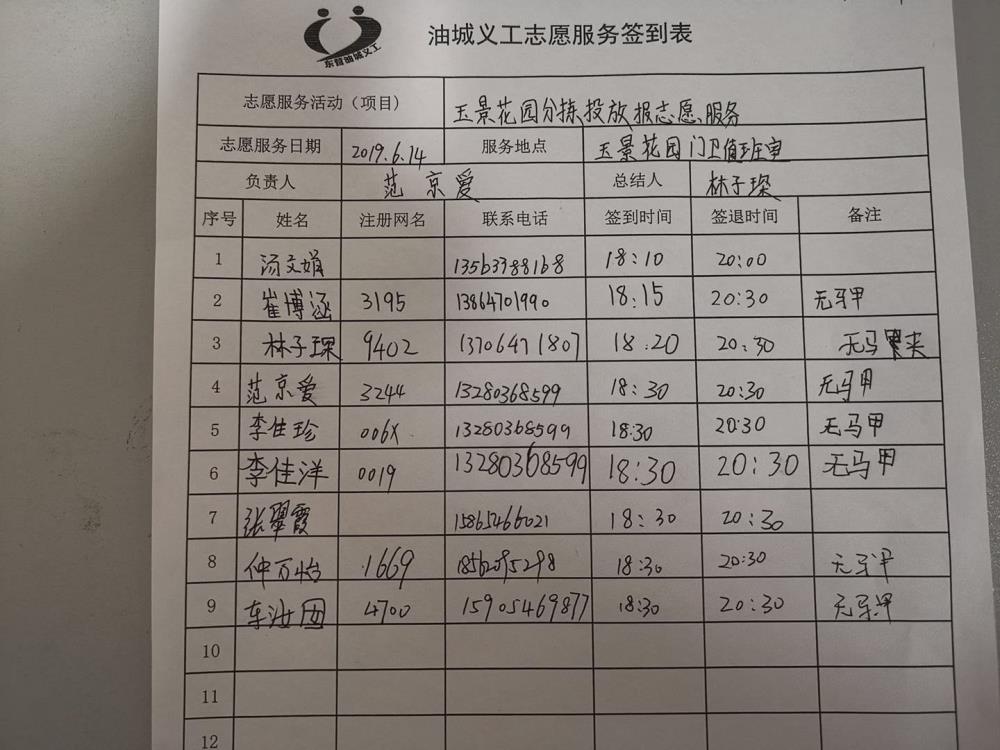 东营油城义工
油城义工志愿服务签到表
志愿服务活动（项目） 玉景花园分拣投放报志愿服务
志愿服务日期 2019.6.14 服务地点 玉景花园门卫值班室
负责人 范京爱 总结人 林子琛
序号 姓名 注册网名 联系电话 签到时间 签退时间 备注
1 汤文娟 13563788168 18:10 20:00
2 崔博涵 3195 13864701990 18:15 20:30 无马甲
3 林子琛 9402 13706471807 18:20 20:30 无马夹
4 范京爱 3244 13280368599 18:30 20:30 无马甲
5 李佳珍 006X 13280368599 18:30 20:30 无马甲
6 李佳洋 0019 13280368599 18:30 20:30 无马甲
7 张翠霞 15865466021 18:30 20:30
8 仲万怡 1669 18562095298 18:30 20:30 无马甲
9 车汝 4700 15905469877 18:30 20:30 无马甲
10
11
12